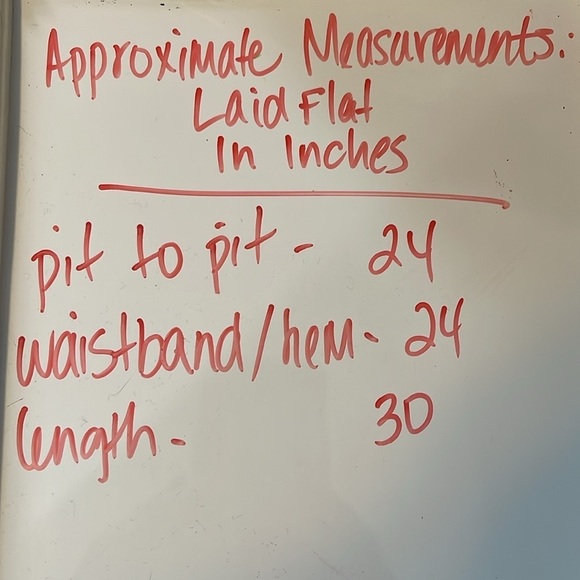 Approximate Measurements:
Laid Flat
In Inches
pit to pit - 24
waistband/hem - 24
length - 30